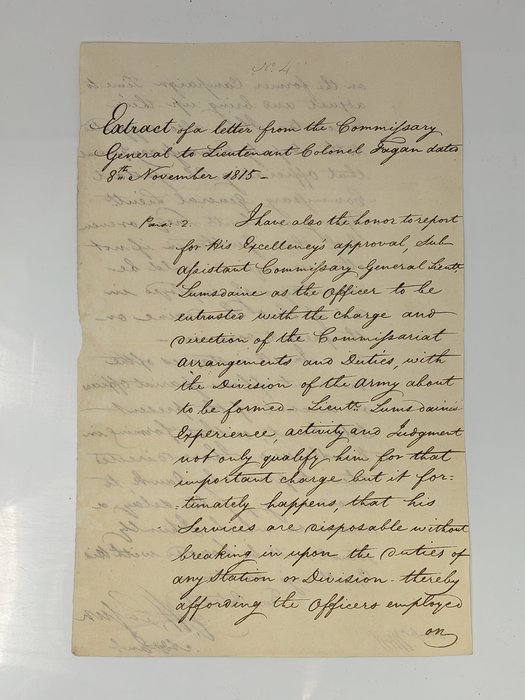 No. 4
Extract of a letter from the Commissary
General to Lieutenant Colonel Fagan dated
8th November 1815 -
Para. 2. I have also the honor to report
for His Excellency's approval, Sub
Assistant Commissary General Lieutt
Lumsdaine as the Officer to be
entrusted with the charge and
direction of the Commissariat
arrangements and Duties, with
the Division of the Army about
to be formed - Lieutt. Lumsdaine's
Experience, activity and Judgment
not only qualify him for that
important charge but it for:
:tunately happens that his
Services are disposable without
breaking in upon the duties of
any Station or Division - thereby
affording the Officers employed
on